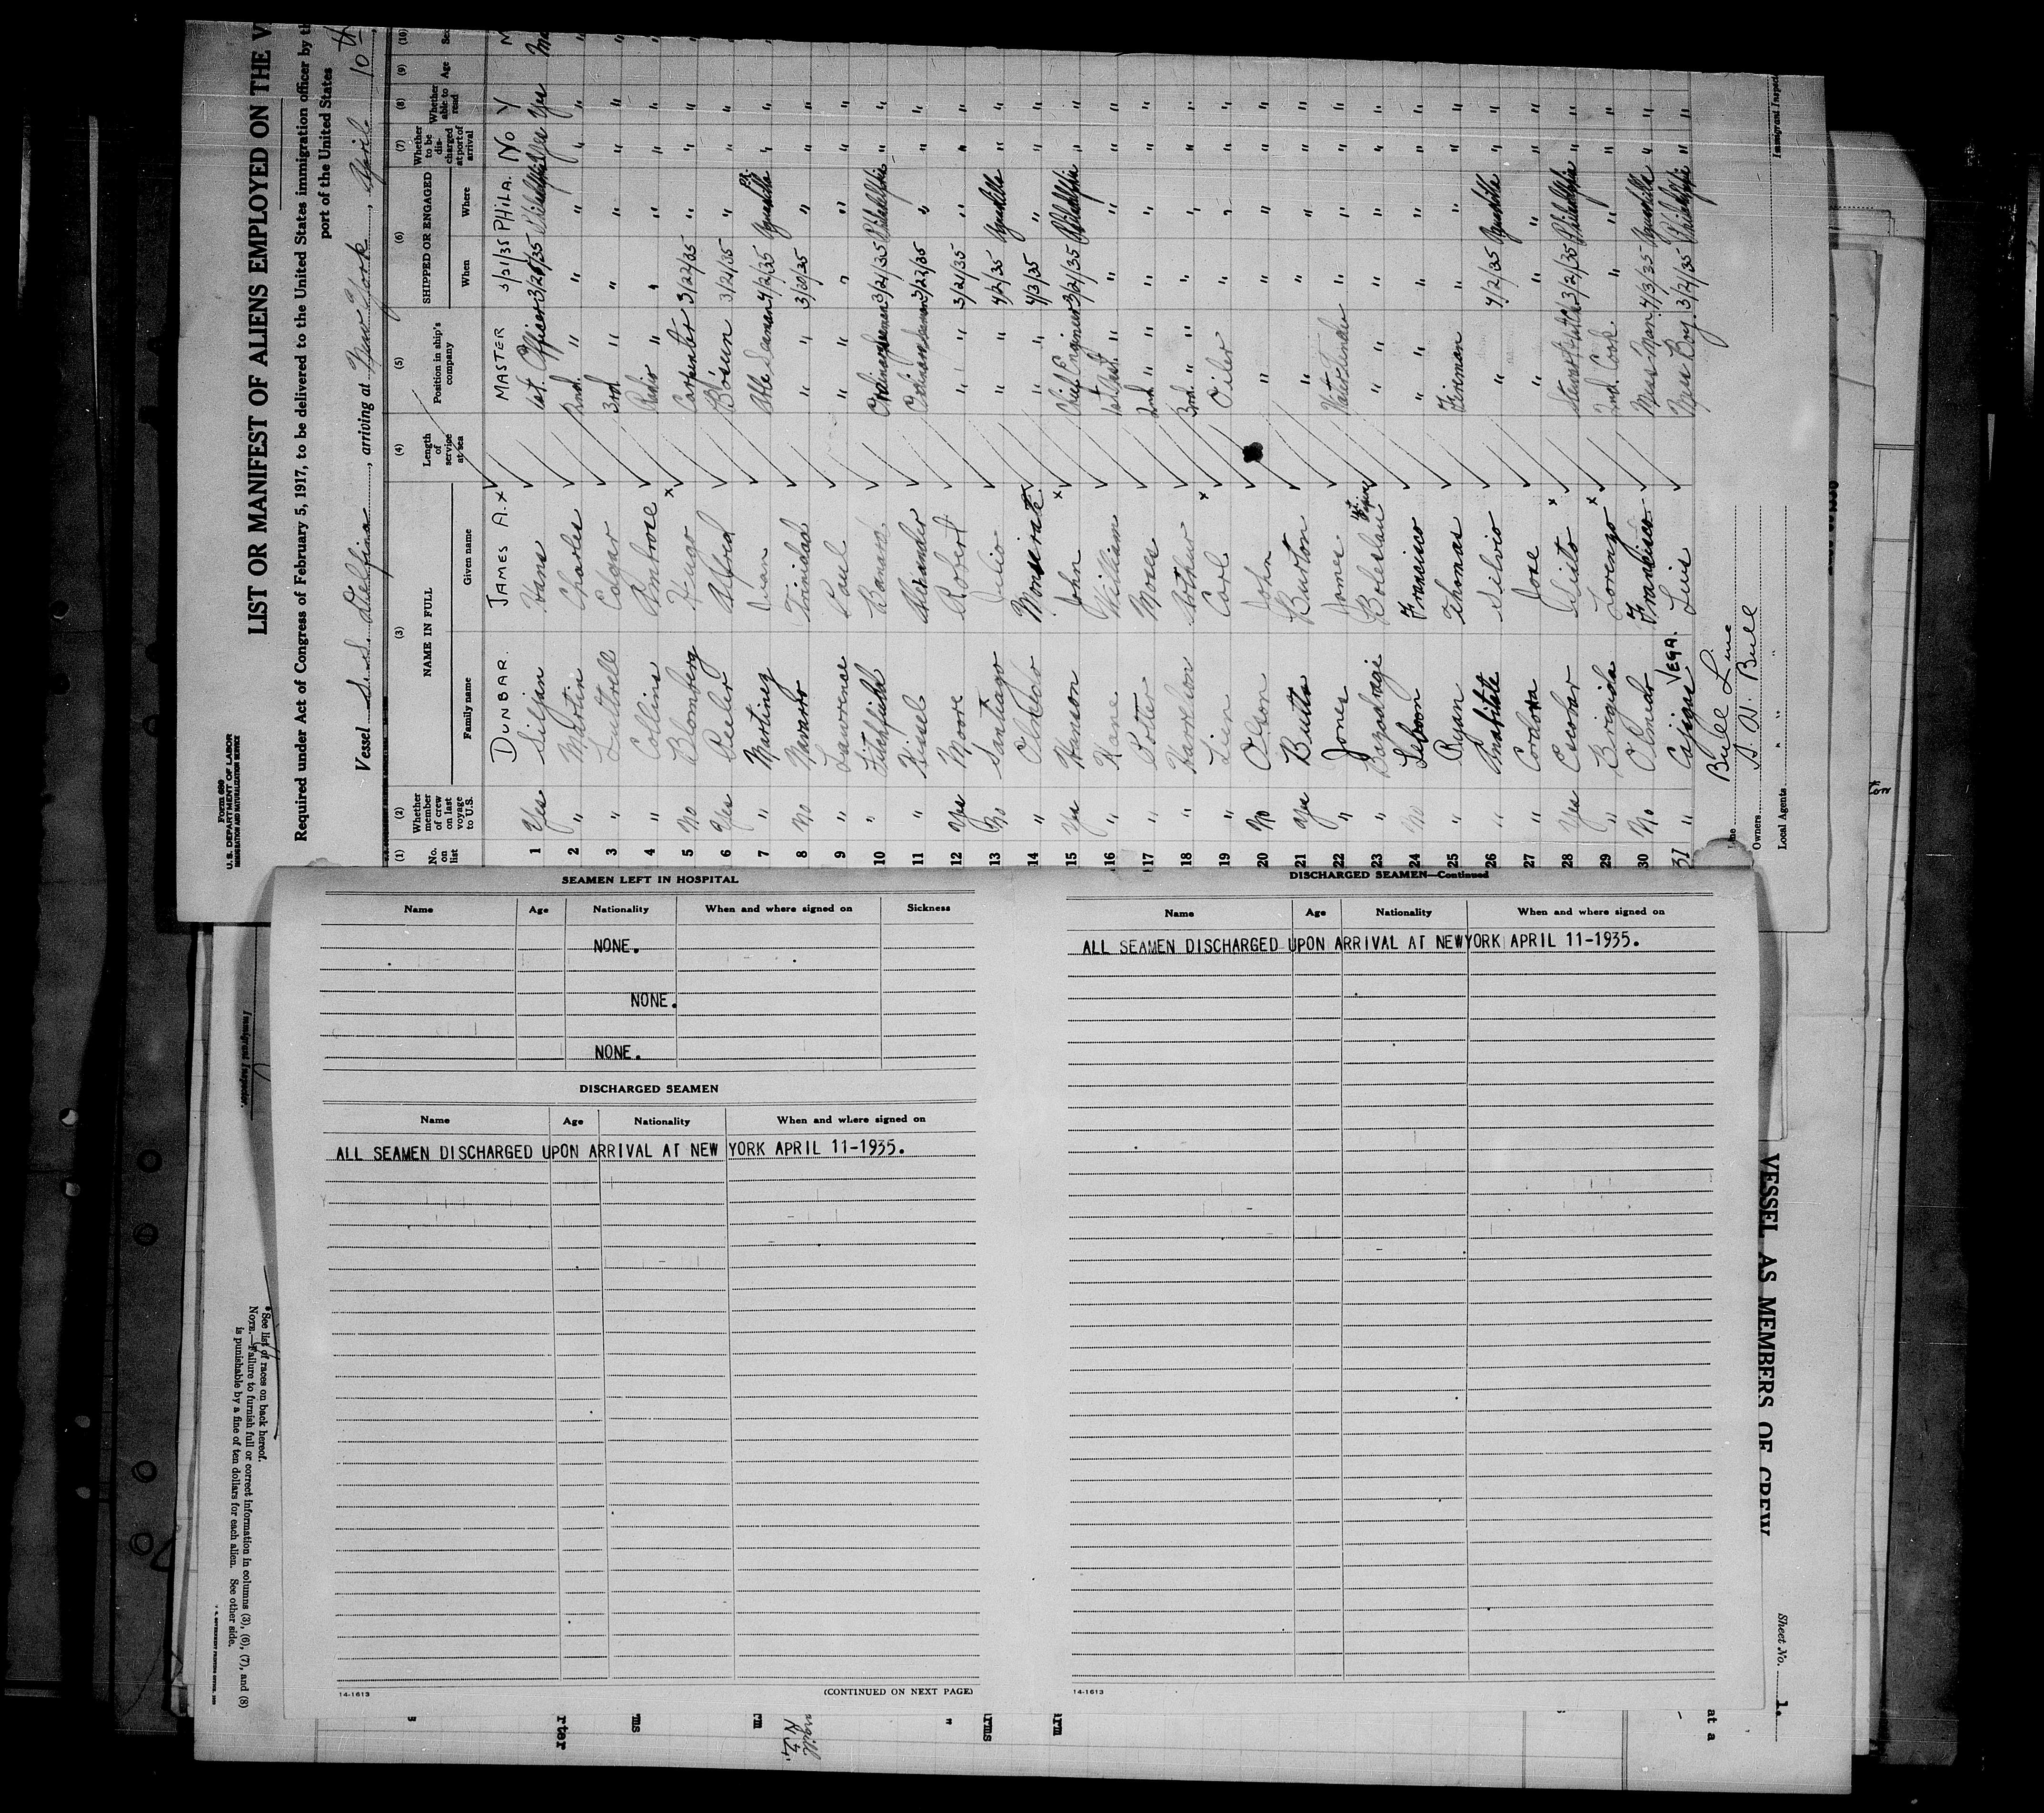 Form 689
U.S. DEPARTMENT OF LABOR
IMMIGRATION AND NATURALIZATION SERVICE
LIST OR MANIFEST OF ALIENS EMPLOYED ON THE V
Required under Act of Congress of February 5, 1917, to be delivered to the United States immigration officer by th
port of the United States
Vessel S.S. Delfina, arriving at New York, April 10th
(1) (2) (3) (4) (5) (6) (7) (8) (9) (10)
No. on list Whether member of crew on last voyage to U.S. NAME IN FULL Family name Given name Length of service at sea Position in ship's company SHIPPED OR ENGAGED When Where Whether to be discharged at port of arrival Whether able to read Age
DUNBAR. JAMES A. x MASTER 3/21/35 PHILA. No Y M
1 Yes Siljan Hans 1st. Officer Yes Yes
2 " Martin Charles 2nd. " " " " "
3 " Luttrell Edgar 3rd " " " " "
4 " Collins Ambrose Radio " " " " "
5 No Blomberg Hugo Carpenter 3/22/35 " " "
6 Yes Peeler Alfred Bosun 3/21/35 " " "
7 " Martinez Juan Able Seaman 4/2/35 Aguadilla PR. " "
8 No Navarro Trinidad " " 3/30/35 " " "
9 " Lawrence Paul " " " " " "
10 " Ordinary Seaman 3/21/35 Philadelphia " "
11 " Kissel Alexander Ordinary Seaman 3/22/35 " " "
12 Yes Moore Robert " " 3/21/35 " " "
13 No Santiago Julio " " 4/2/35 Aguadilla " "
14 " Olmedo Monserate " " 4/3/35 " " "
15 Yes Hanson John x Chief Engineer 3/21/35 Philadelphia " "
16 " Kane William 1st Asst. " " " " "
17 " Porter Moses 2nd " " " " " "
18 " Harrelson Arthur 3rd. " " " " " "
19 " Lien Carl Oiler " " " "
20 No Olson John " " " " "
21 Yes Butts Burton " " " " "
22 " Jones James Watertender " " " "
23 " Boleslau " " " " "
24 No Lebron Francisco " " " " "
25 " Ryan Thomas Fireman " " " "
26 " Silvio " 4/2/35 Aguadilla " "
27 " Cordova Jose " " " " "
28 Yes Escobar Sixto x Steward 3/21/35 Philadelphia " "
29 " Lorenzo x 2nd. Cook. " " " "
30 No Olmedo Francisco Mess Man 4/3/35 Aguadilla " "
31 " Cajigas VEGA. Luis Mess Boy. 3/21/35 Philadelphia " "
Line Bull Line
Owners A. H. Bull
Local Agents " " "
Immigrant Inspec
SEAMEN LEFT IN HOSPITAL
Name Age Nationality When and where signed on Sickness
NONE.
NONE.
NONE.
DISCHARGED SEAMEN
Name Age Nationality When and where signed on
ALL SEAMEN DISCHARGED UPON ARRIVAL AT NEW YORK APRIL 11-1935.
14-1613
(CONTINUED ON NEXT PAGE)
DISCHARGED SEAMEN—Continued
Name Age Nationality When and where signed on
ALL SEAMEN DISCHARGED UPON ARRIVAL AT NEWYORK APRIL 11-1935.
14-1613
Immigrant Inspector.
*See list of races on back hereof.
NOTE.—Failure to furnish full or correct information in columns (3), (6), (7), and (8)
is punishable by a fine of ten dollars for each alien. See other side.
VESSEL AS MEMBERS OF CREW
Sheet No. 1.
at a